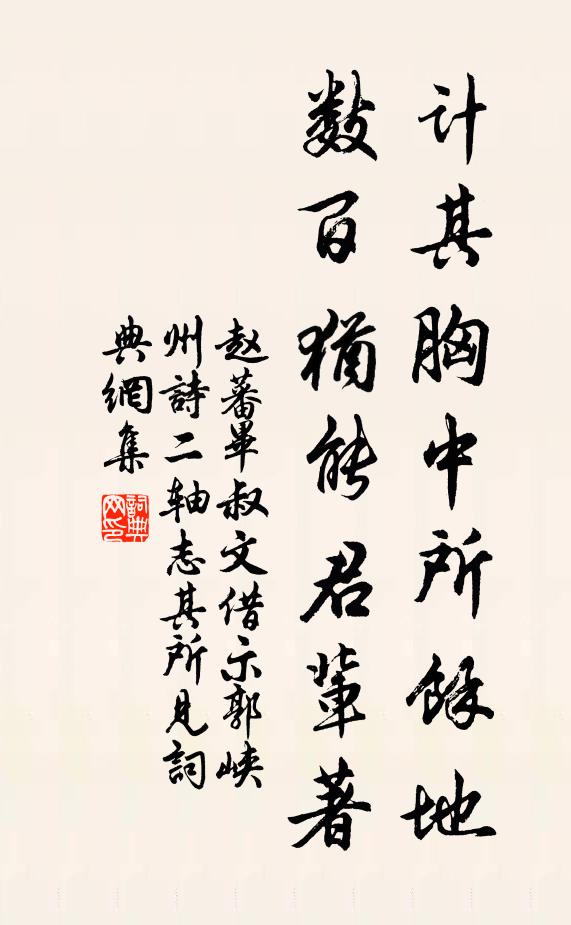 计其胸中所馀地
数百猶能君輩著
赵蕃畢叔文借示郭峡
州詩二轴志其所见詞
典網集
詞典網印